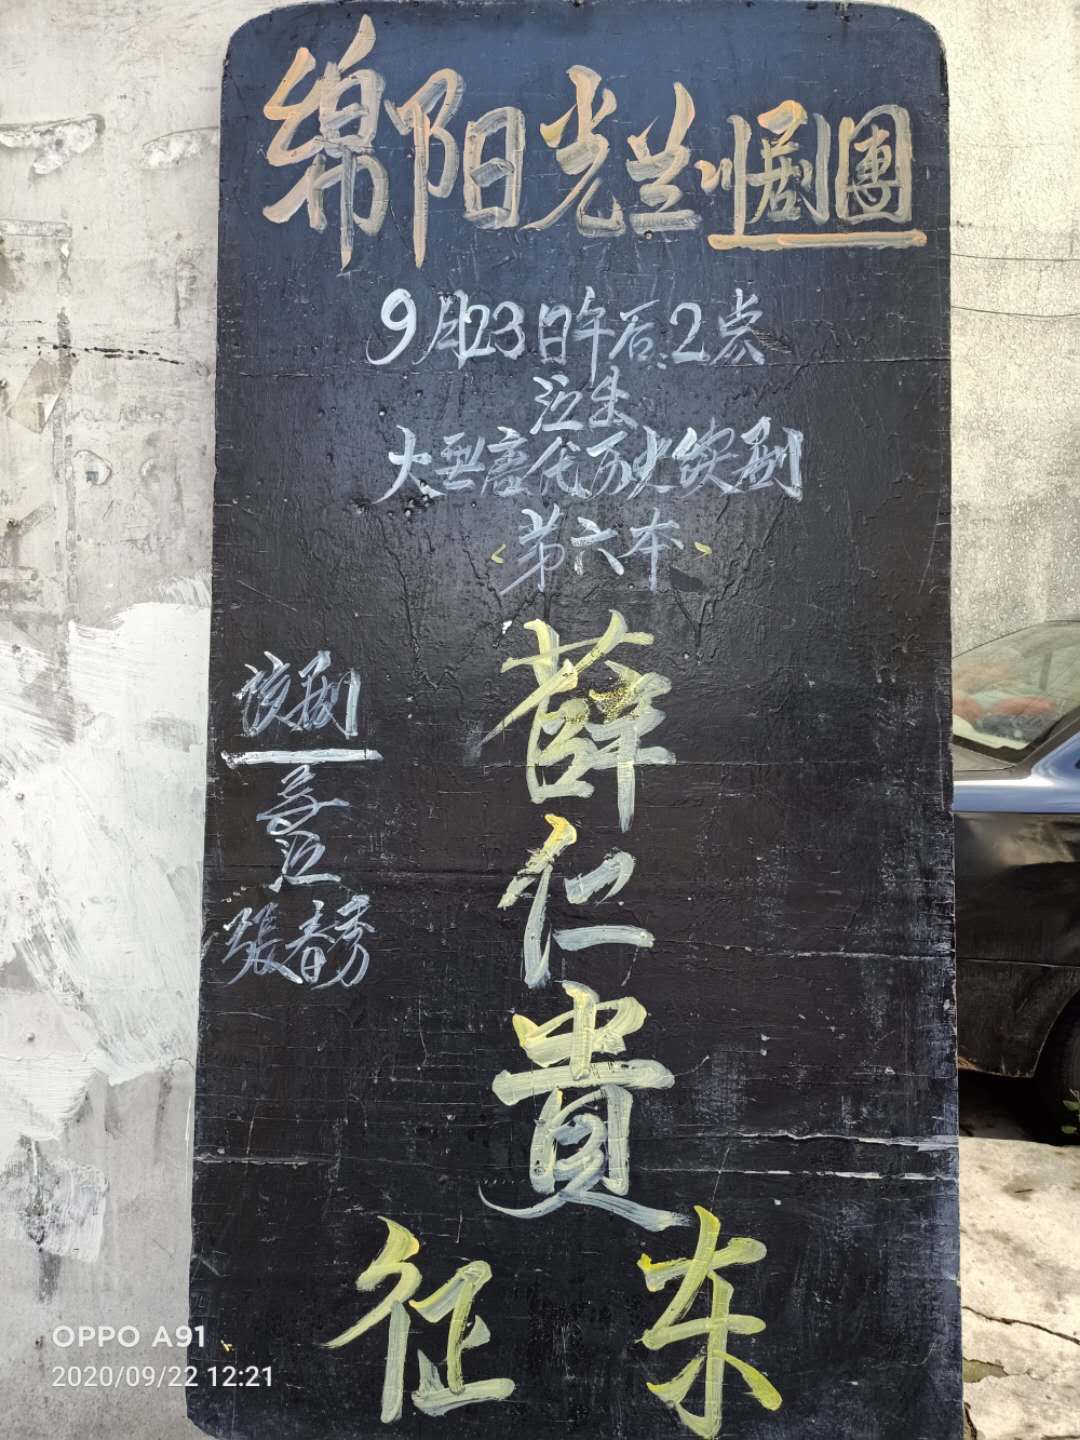 绵阳光兰川剧團
9月23日午后:2点
泣出
大型唐代历史连剧
<第六本>
薛
仁
貴
征 东
该剧
导泣
張春秀
OPPO A91
2020/09/22 12:21